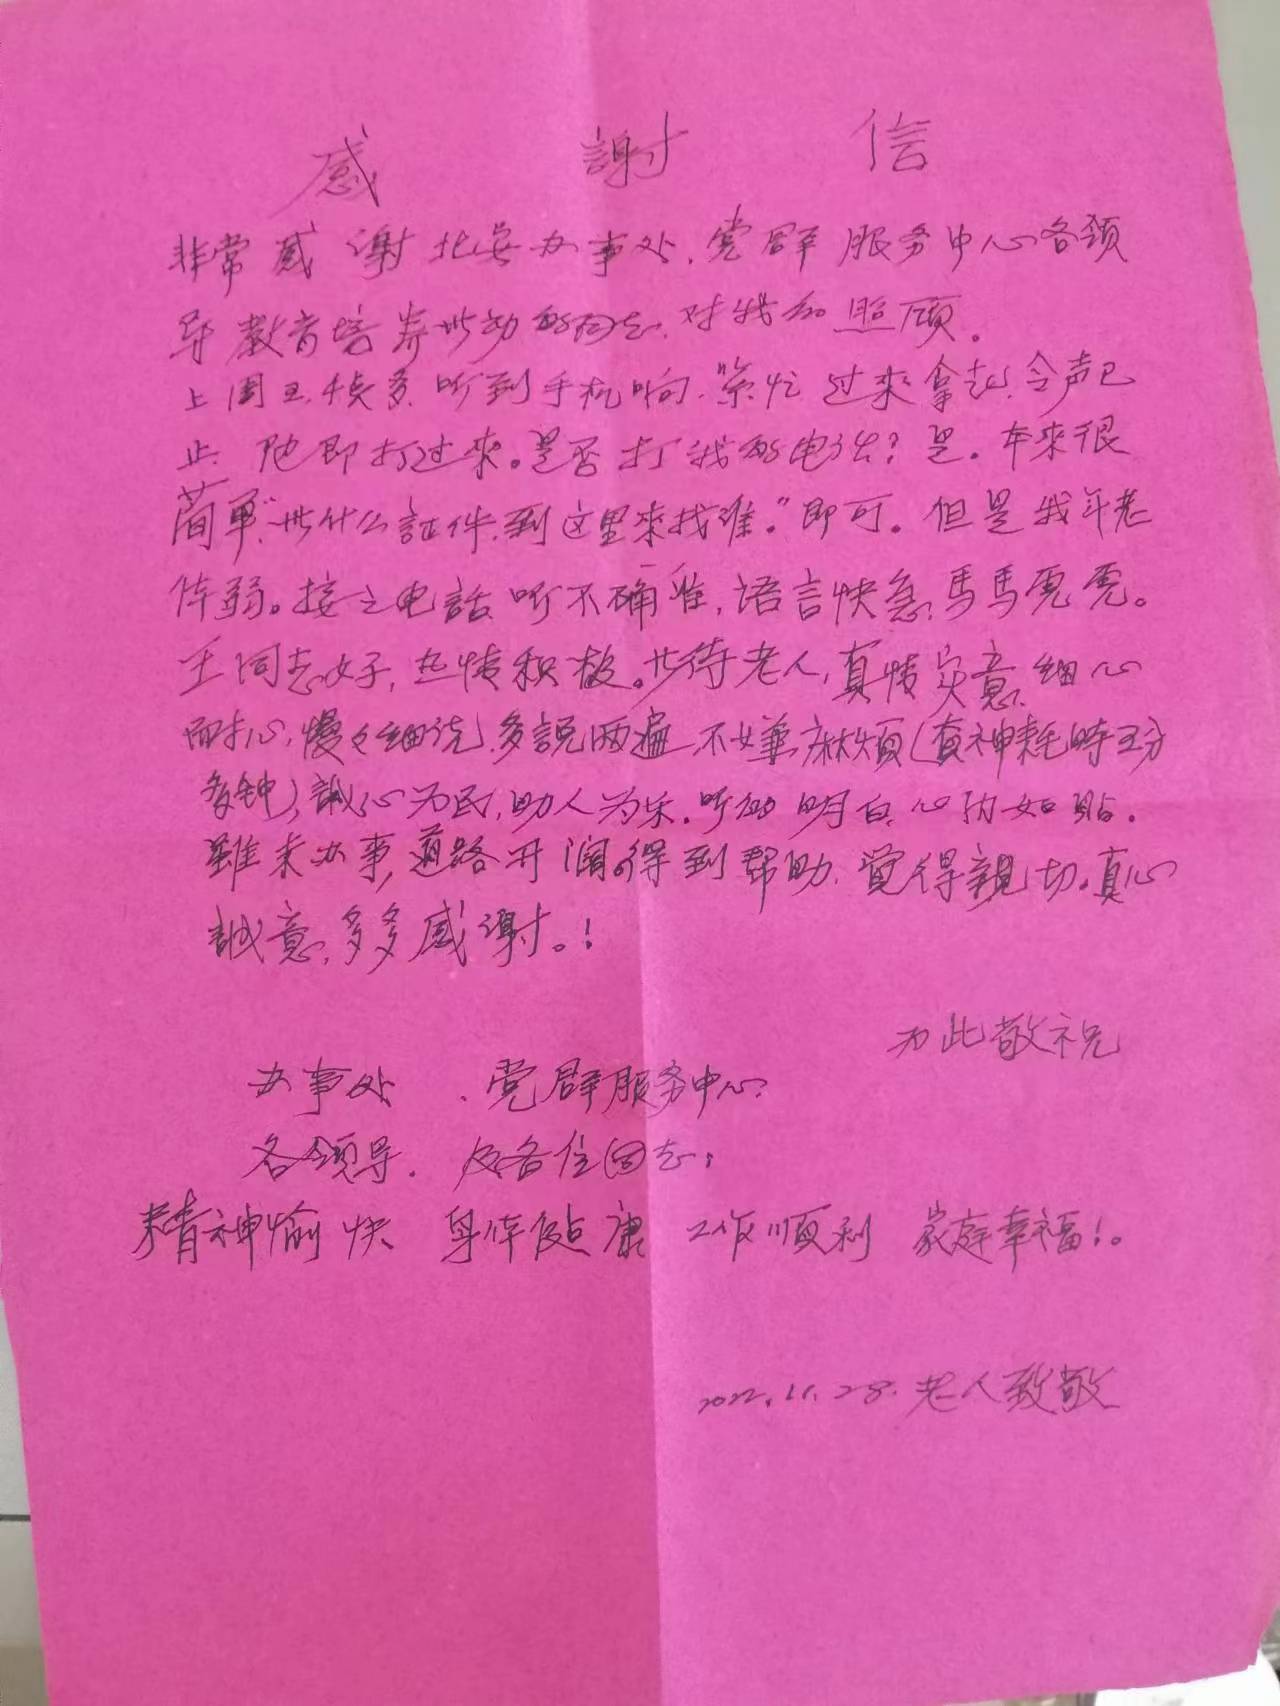 感 謝 信
非常感谢北安办事处、党群服务中心各领
导教育培养出的同志、对我的照顾。
上周五, 听到手机响、紧忙过来拿起、令声已
止. 随即打过来。是否打我的电话? 是. 本来很
简单、"什么証件、到这里来找谁。" 即可。但是我年老
体弱。接之电話听不确准, 语言快急, 馬馬虎虎。
王同志好, 热情积极。对待老人, 真情实意, 细心
耐心, 慢々细说, 多説两遍, 不嫌麻烦(费神耗時五分
多钟), 誠心为民, 助人为乐. 听的明白, 心内如貼.
雖未办事, 道路开阔。得到帮助, 覚得親切。真心
誠意, 多多感谢。!
为此敬祝
办事处 、党群服务中心:
各领导. 及各位同志:
精神愉快 身体健康 工作順利 家庭幸福!。
2022.11.28. 老人致敬